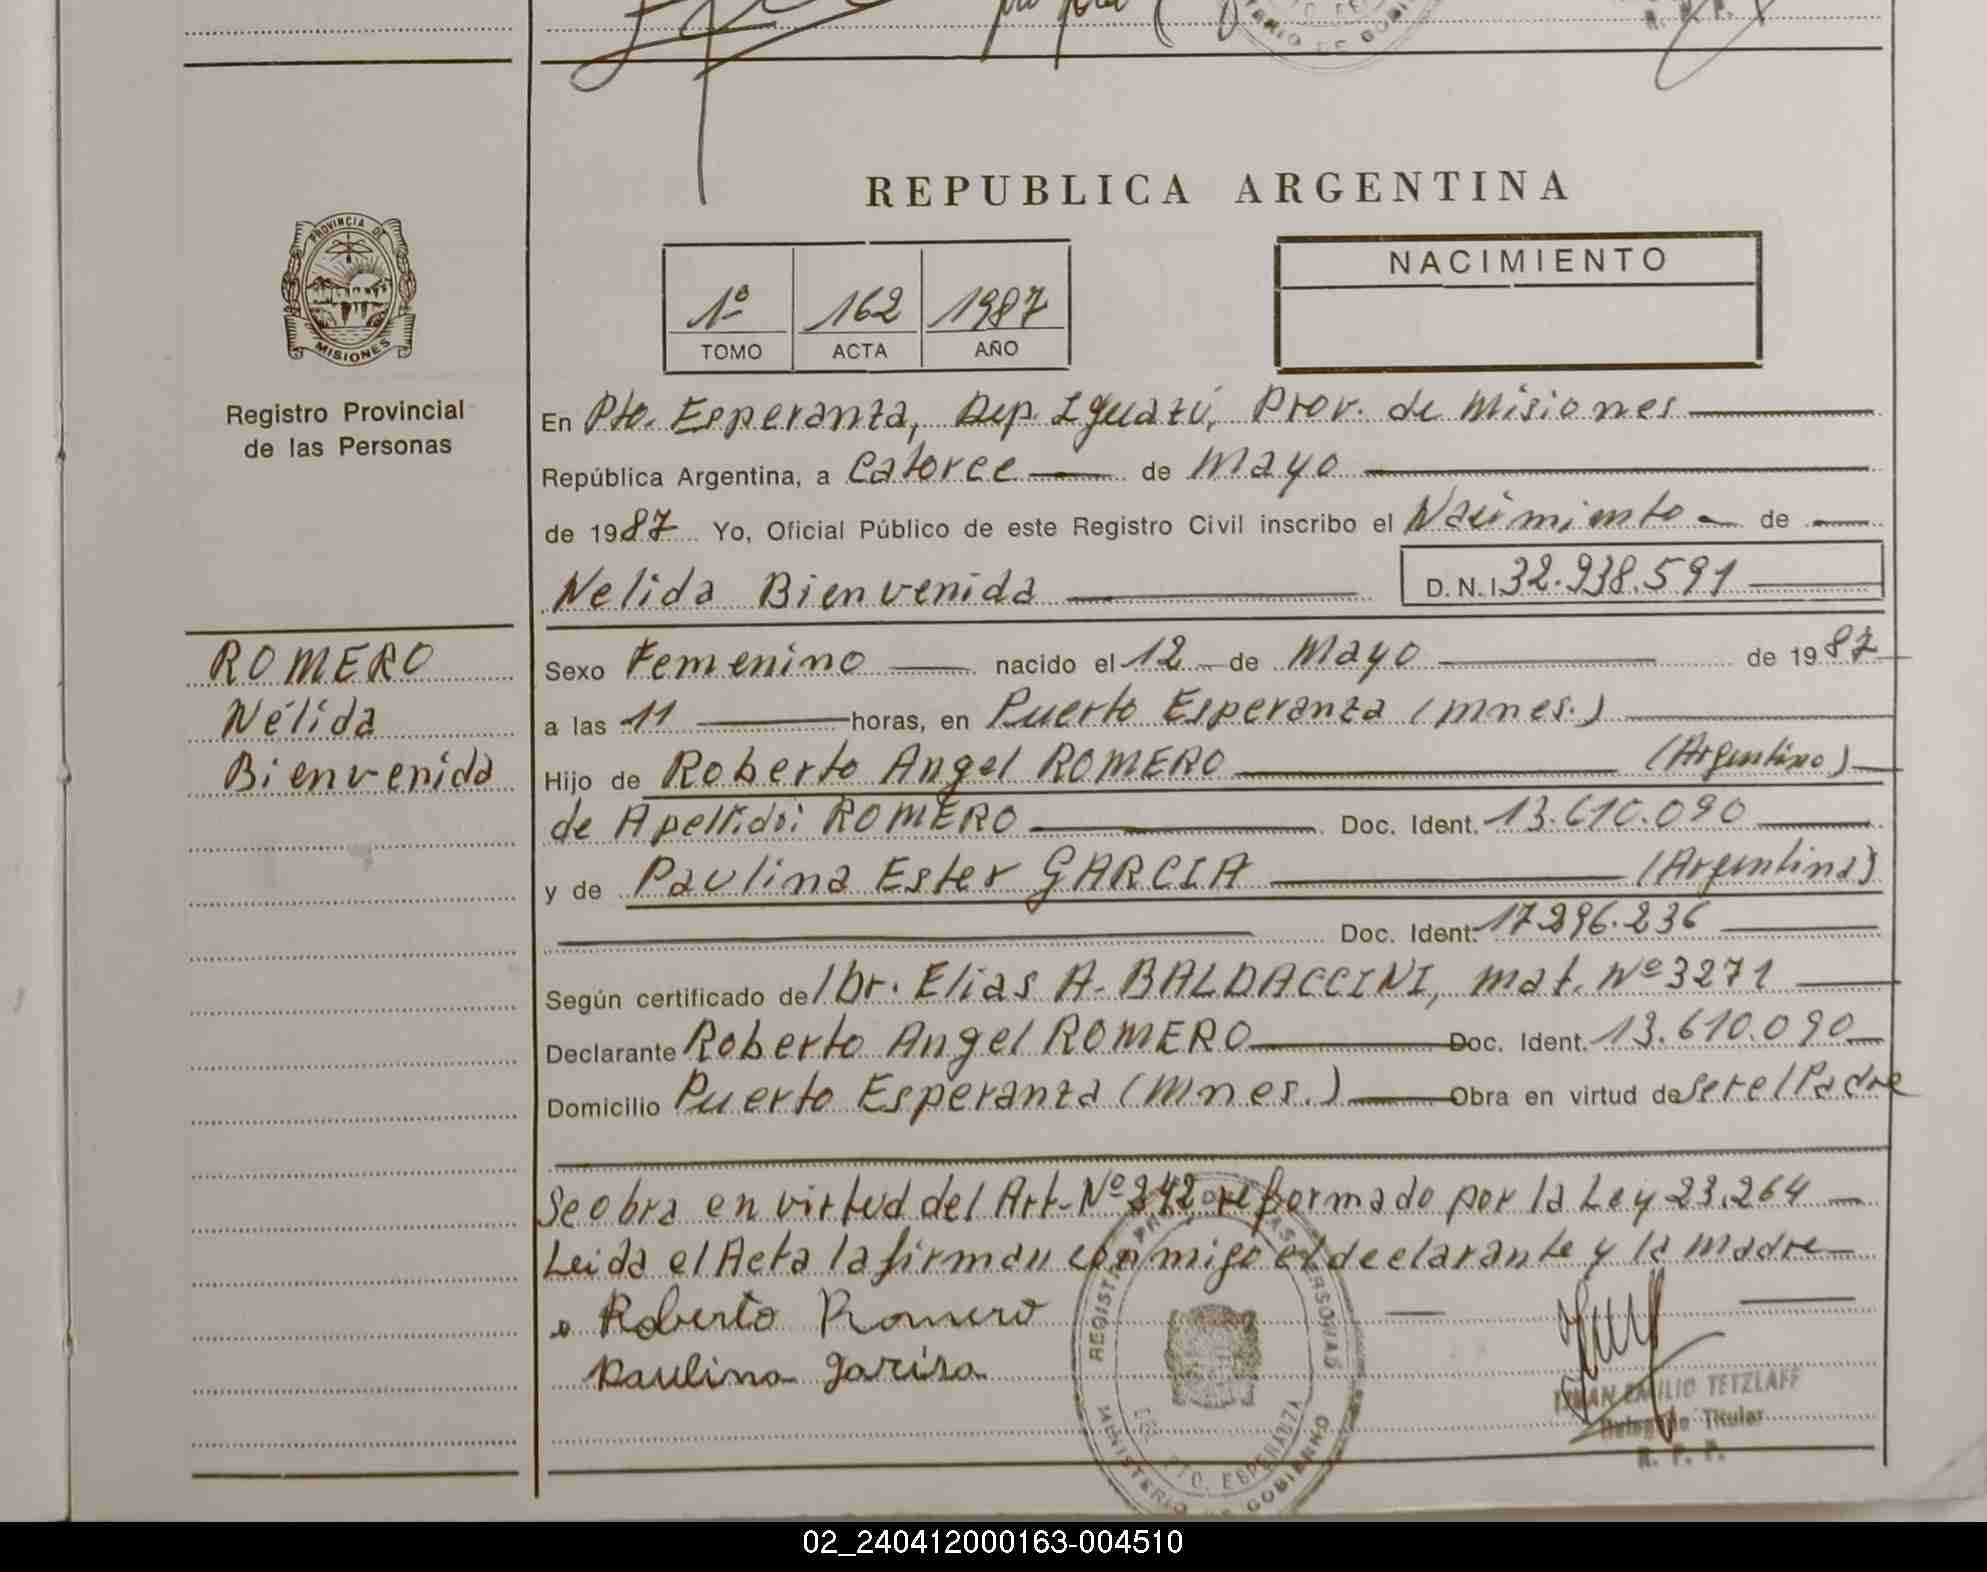 REPUBLICA ARGENTINA
PROVINCIA DE
MISIONES
Registro Provincial
de las Personas
1º 162 1987
TOMO ACTA AÑO
NACIMIENTO
En Pto. Esperanza, Dep. Iguazú, Prov. de Misiones
República Argentina, a Catorce de Mayo
de 1987 Yo, Oficial Público de este Registro Civil inscribo el Nacimiento de
Nelida Bienvenida D.N.I. 32.938.591
ROMERO
Nélida
Bienvenida
Sexo Femenino nacido el 12 de Mayo de 1987
a las 11 horas, en Puerto Esperanza (Mnes.)
Hijo de Roberto Angel ROMERO (Argentino)
de Apellido: ROMERO Doc. Ident. 13.610.090
y de Paulina Ester GARCIA (Argentina)
Doc. Ident. 17.296.236
Según certificado del Dr. Elias A. BALDACCINI, Mat. Nº 3271
Declarante Roberto Angel ROMERO Doc. Ident. 13.610.090
Domicilio Puerto Esperanza (Mnes.) Obra en virtud de ser el Padre
Se obra en virtud del Art. Nº 242 reformado por la Ley 23.264
Leida el Acta la firman conmigo el declarante y la madre
Roberto Romero
Paulina Garcia
REGISTRO PROV. DE LAS PERSONAS
DEL. PTO. ESPERANZA
MINISTERIO DE GOBIERNO
EMILIO TETZLAFF
Delegado Titular
R. P. P.
02_240412000163-004510